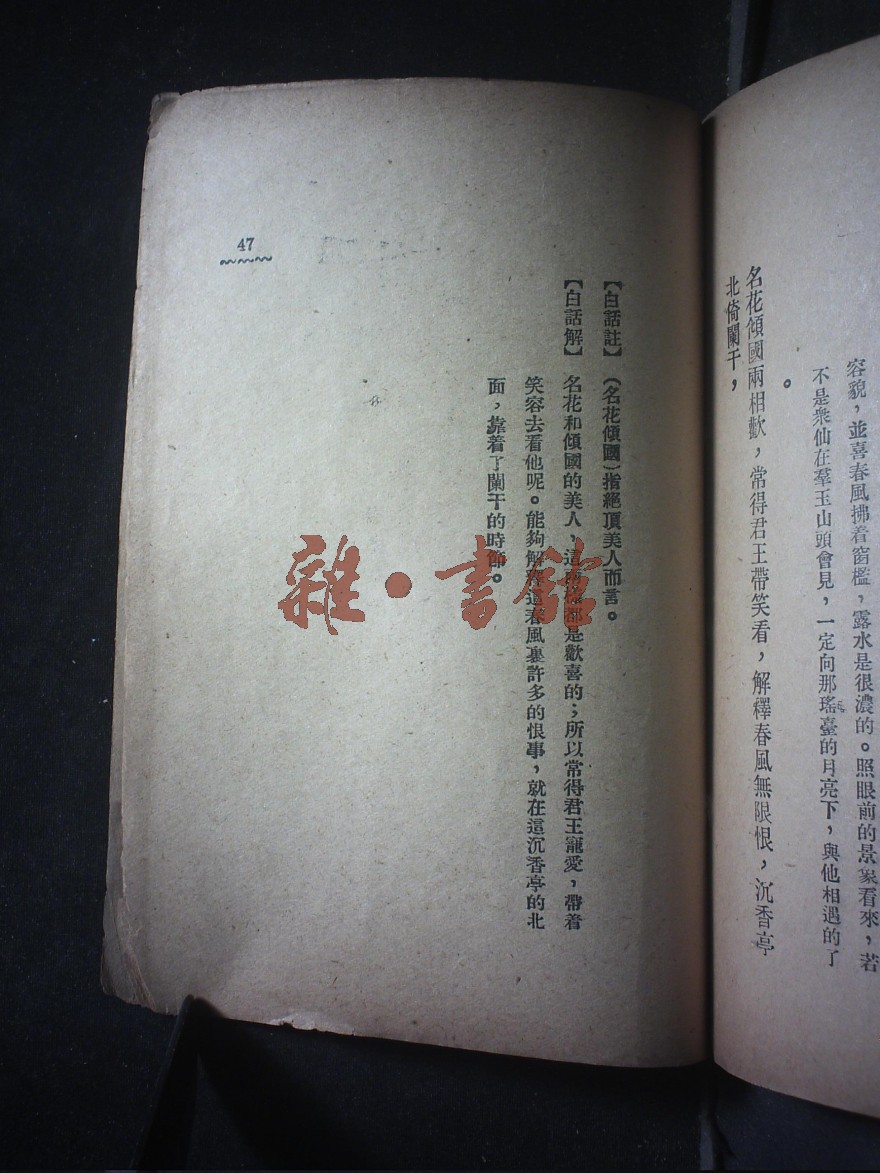 容貌，並喜春風拂着窗檻，露水是很濃的。照眼前的景象看來，若
不是衆仙在羣玉山頭會見，一定向那瑤臺的月亮下，與他相遇的了
。
名花傾國兩相歡，常得君王帶笑看，解釋春風無限恨，沉香亭
北倚闌干，
【白話註】（名花傾國）指絕頂美人而言。
【白話解】名花和傾國的美人，這兩樣都是歡喜的；所以常得君王寵愛，帶着
笑容去看他呢。能夠解釋這春風裏許多的恨事，就在這沉香亭的北
面，靠着了闌干的時節。
47
雜·書館